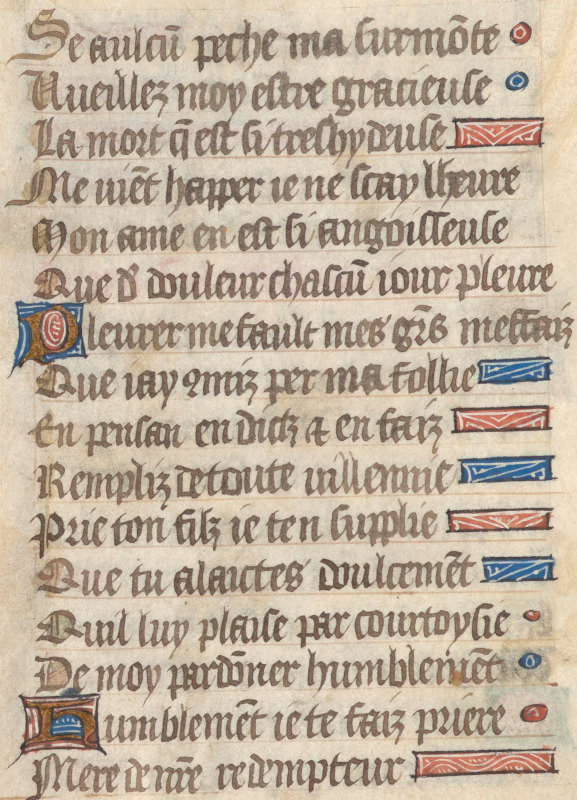 Se aulcū peche ma surmōte
Vueillez moy estre gracieuse
La mort q̄ est si treshydeuse
Me viēt happer ie ne scay lheure
Mon ame en est si angoisseuse
Que d' douleur chascū iour pleure
Pleurer me fault mes gr̄s meffaiz
Que iay ꝯmiz per ma follie
En pensan en dictz ⁊ en faiz
Rempliz de toute villennie
Prie ton filz ie ten supplie
Que tu alaictes doulcemēt
Quil luy plaise par courtoysie
De moy pardōner humblemēt
Humblemēt ie te faiz priere
Mere de nr̄e redempteur